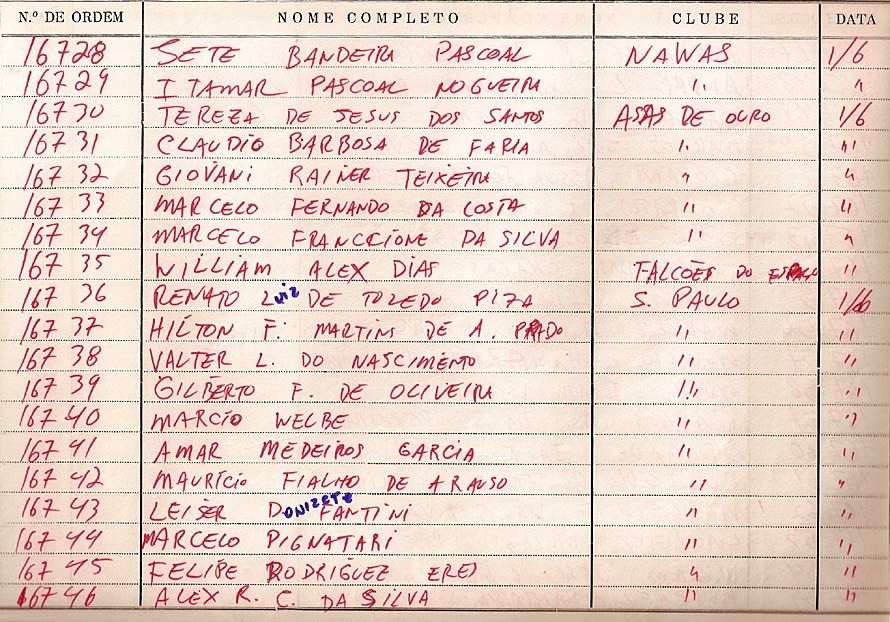 N.º DE ORDEM NOME COMPLETO CLUBE DATA
16728 SETE BANDEIRA PASCOAL NAWAS 1/6
16729 ITAMAR PASCOAL NOGUEIRA " "
16730 TEREZA DE JESUS DOS SANTOS ASAS DE OURO 1/6
16731 CLAUDIO BARBOSA DE FARIA " "
16732 GIOVANI RAINER TEIXEIRA " "
16733 MARCELO FERNANDO DA COSTA " "
16734 MARCELO FRANCCIONE DA SILVA " "
16735 WILLIAM ALEX DIAS FALCÕES DO ESPAÇO "
16736 RENATO LUIZ DE TOLEDO PIZA S. PAULO 1/6
16737 HILTON F. MARTINS DE A. PRADO " "
16738 VALTER L. DO NASCIMENTO " "
16739 GILBERTO F. DE OLIVEIRA " "
16740 MARCIO WELBE " "
16741 AMAR MEDEIROS GARCIA " "
16742 MAURÍCIO FIALHO DE ARAUSO " "
16743 LEISER DONIZETE FANTINI " "
16744 MARCELO PIGNATARI " "
16745 FELIPE RODRIGUEZ " "
16746 ALEX R. C. DA SILVA " "